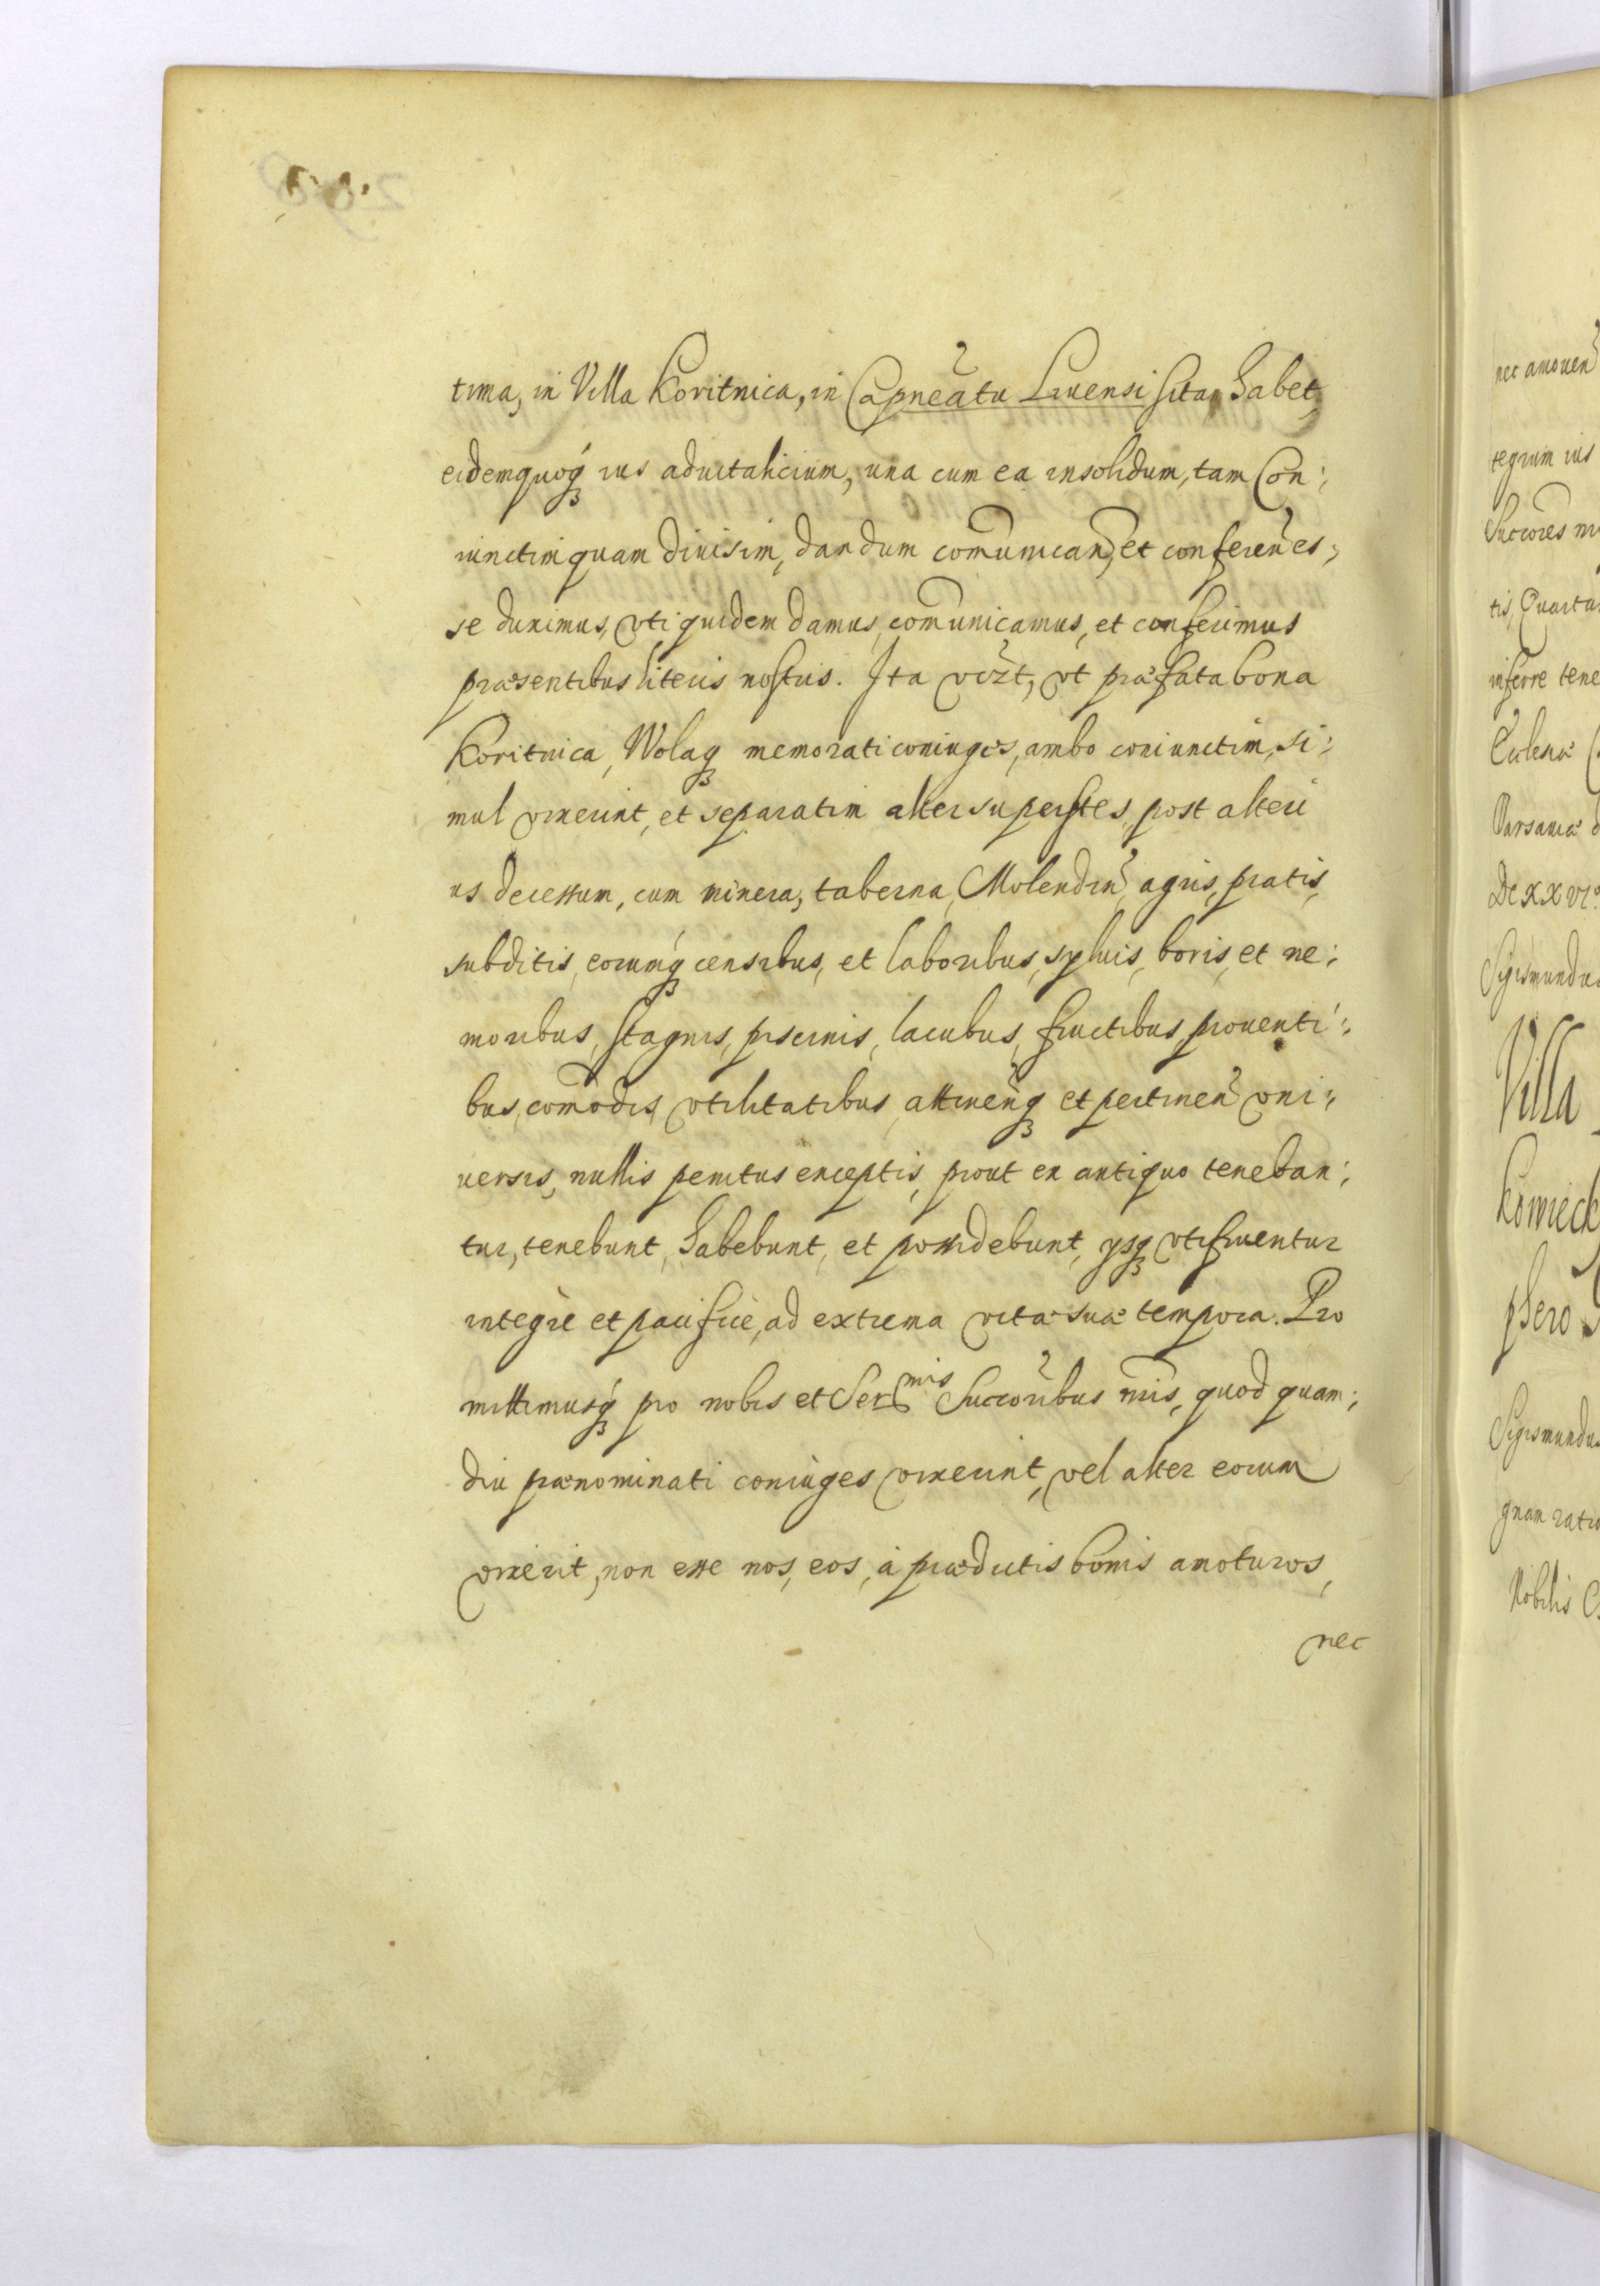 tima, in Villa Koritnica, in Capneatu Liuensi sita habet,
eidemquoq₃ ius aduitalicium, una cum ea insolidum, tam Con:
iunctim quam diuisim, dandum comunicand, et conferen es:
se duximus, vti quidem damus, comunicamus, et conferimus
præsentibus literis nostris. Ita vizt, vt præfata bona
Koritnica, Wolaq₃ memorati coniuges, ambo coniunctim, si:
mul vixerint, et separatim alter superstes, post alteri
us decessum, cum minera, taberna, Molendin, agris, pratis,
subditis, eorumq₃ censibus, et laboribus, syluis, boris, et ne:
moribus, stagnis, piscinis, lacubus, fructibus, prouenti:
bus, comodis, vtilitatibus, attinenq₃ et pertinen vni:
uersis, nullis penitus exceptis, prout ex antiquo teneban:
tur, tenebunt, habebunt, et possidebunt, ysq₃ vtifruentur
integre et pacifice, ad extrema vitæ suæ tempora. Pro
mittimusq₃ pro nobis et Ser mis Succoribus nris, quod quam:
diu prænominati coniuges vixerint, vel alter eorum
vixerit, non esse nos, eos, à prædictis bonis amoturos,
nec
nec amouen
tegrum ius
Succores
tis, Quarta
inferre tene
Ecclesiæ
Varsauiæ
De XXVI
Sigismundus
Villa
Kowieck
psero
Sigismundus
gnan ratio
Nobilis